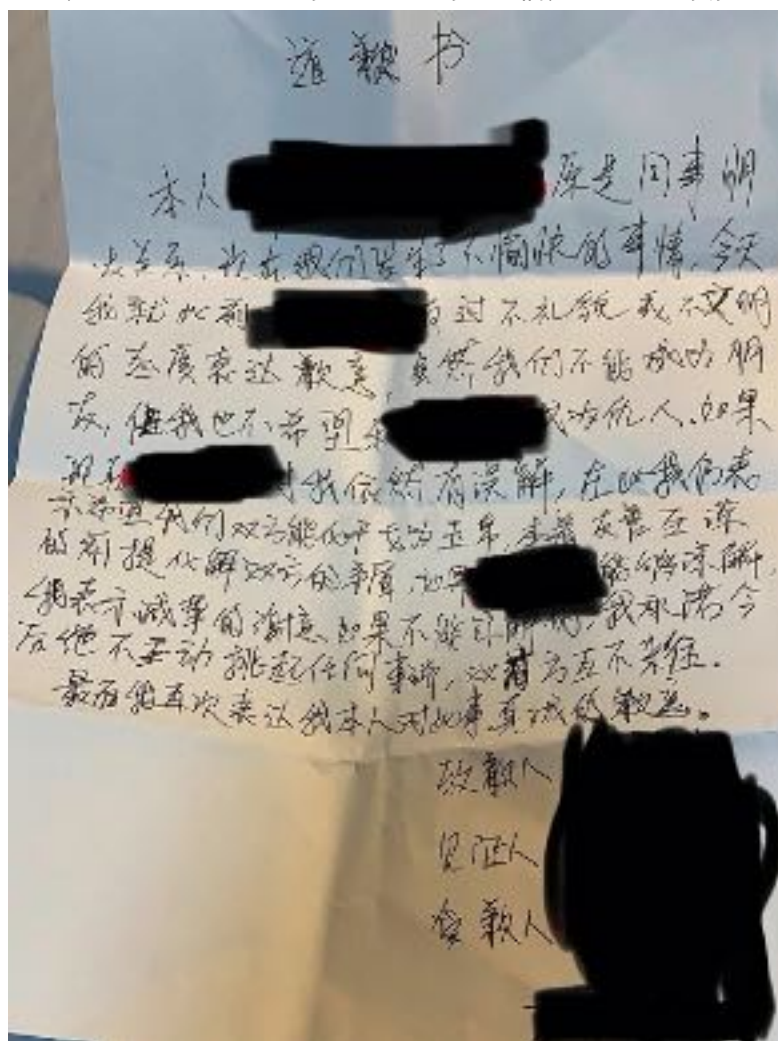 道歉书
本人 原是同事朋
友关系,现在我们发生了不愉快的事情,今天
我就此前 有过不礼貌或不文明
的态度表达歉意,虽然我们不能成为朋
友,但我也不希望 成为仇人,如果
对我依然有误解,在此我们表
示希望我们双方能化干戈为玉帛,本着友善互谅
的前提化解双方的矛盾,如果 能够谅解,
我表示诚挚的谢意,如果不能谅解,我承诺今
后绝不主动挑起任何事端,双方互不关注。
最后我再次表达我本人对此事真诚的歉意。
致歉人
见证人
受歉人